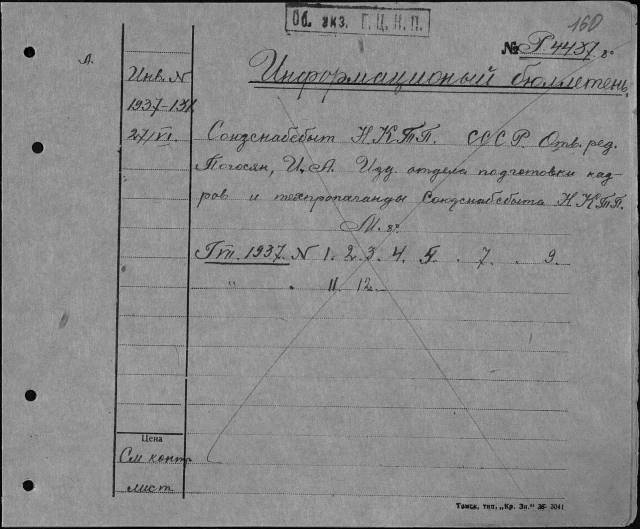 Об. экз. Г.Ц.К.П.
160
№ Р4437 г.
А.
Информационый бюллетень
Инв. N
1937-
27/VI.
Союзснабсбыт НКТП. СССР. Отв. ред.
Погосян, И.А. Изд. отдела подготовки кад-
ров и техпропаганды Союзснабсбыта НКТП.
М. 8º.
1937. N 1. 2. 3. 4. 5. 7. 9.
" 11. 12.
Цена
См. контр.
лист
Томск, тип. „Кр. Зн." 36 3041